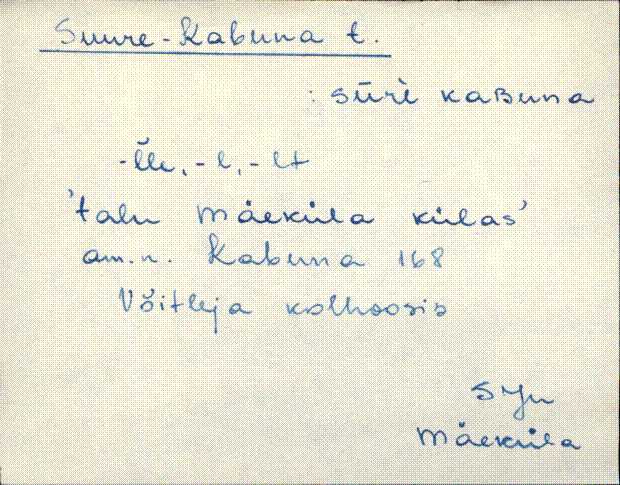 Suure-Kabuna t.
: sūrè kaBuna
-l̆le, -l, -lt
'talu Mäeküla külas'
am.n. Kabuna 168
Võitleja kolhoosis
SJn
Mäeküla